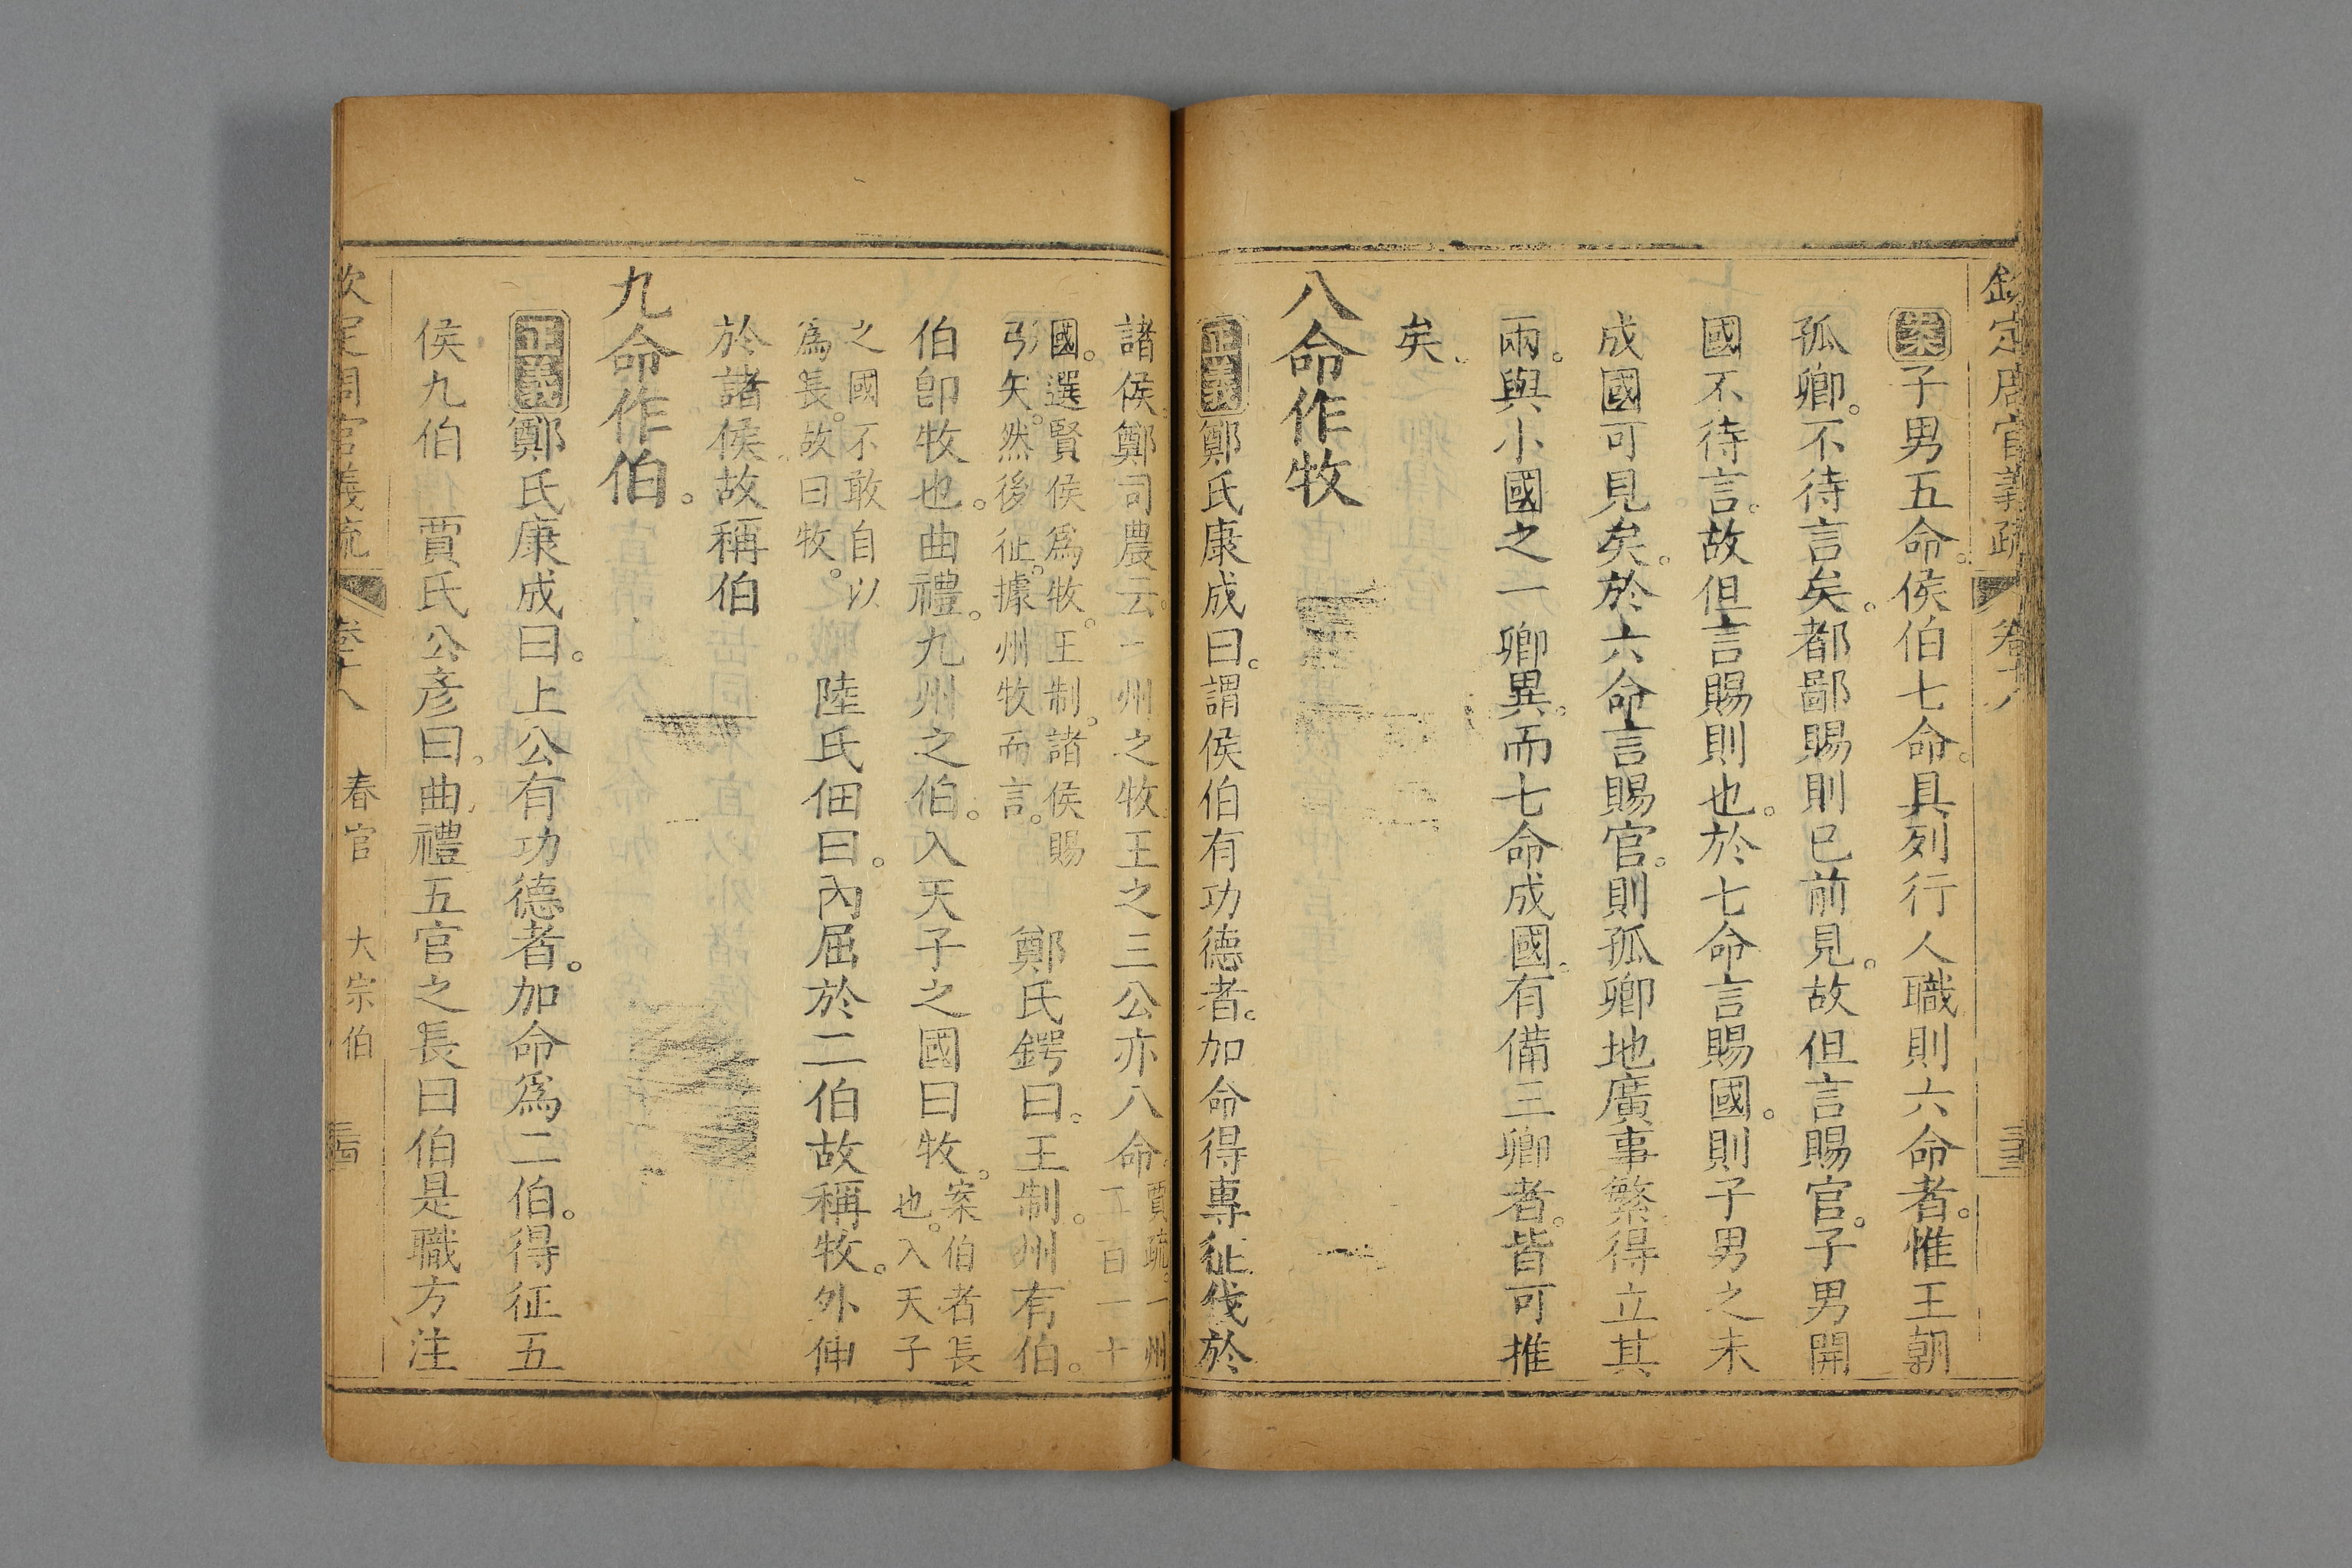 欽定周官義疏 卷十八
案子男五命。侯伯七命。具列行人職則六命者。惟王朝
孤卿。不待言矣。都鄙賜則已前見。故但言賜官。子男開
國不待言。故但言賜則也。於七命言賜國。則子男之未
成國可見矣。於六命言賜官。則孤卿地廣事繁得立其
兩。與小國之一卿異。而七命成國。有備三卿者。皆可推
矣。
八命作牧
正義鄭氏康成曰。謂侯伯有功德者。加命得專征伐於
諸侯。鄭司農云。一州之牧。王之三公亦八命。賈疏。一州二百一十
國。選賢侯爲牧。王制。諸侯賜弓矢。然後征。據州牧而言。 鄭氏鍔曰。王制。州有伯。
伯卽牧也。曲禮。九州之伯。入天子之國曰牧。案伯者長也。入天子
之國不敢自以爲長。故曰牧。 陸氏佃曰。內屈於二伯故稱牧。外伸
於諸侯故稱伯
九命作伯。
正義鄭氏康成曰。上公有功德者。加命爲二伯。得征五
侯九伯 賈氏公彥曰。曲禮五官之長曰伯是職方注
欽定周官義疏 卷十八 春官 大宗伯